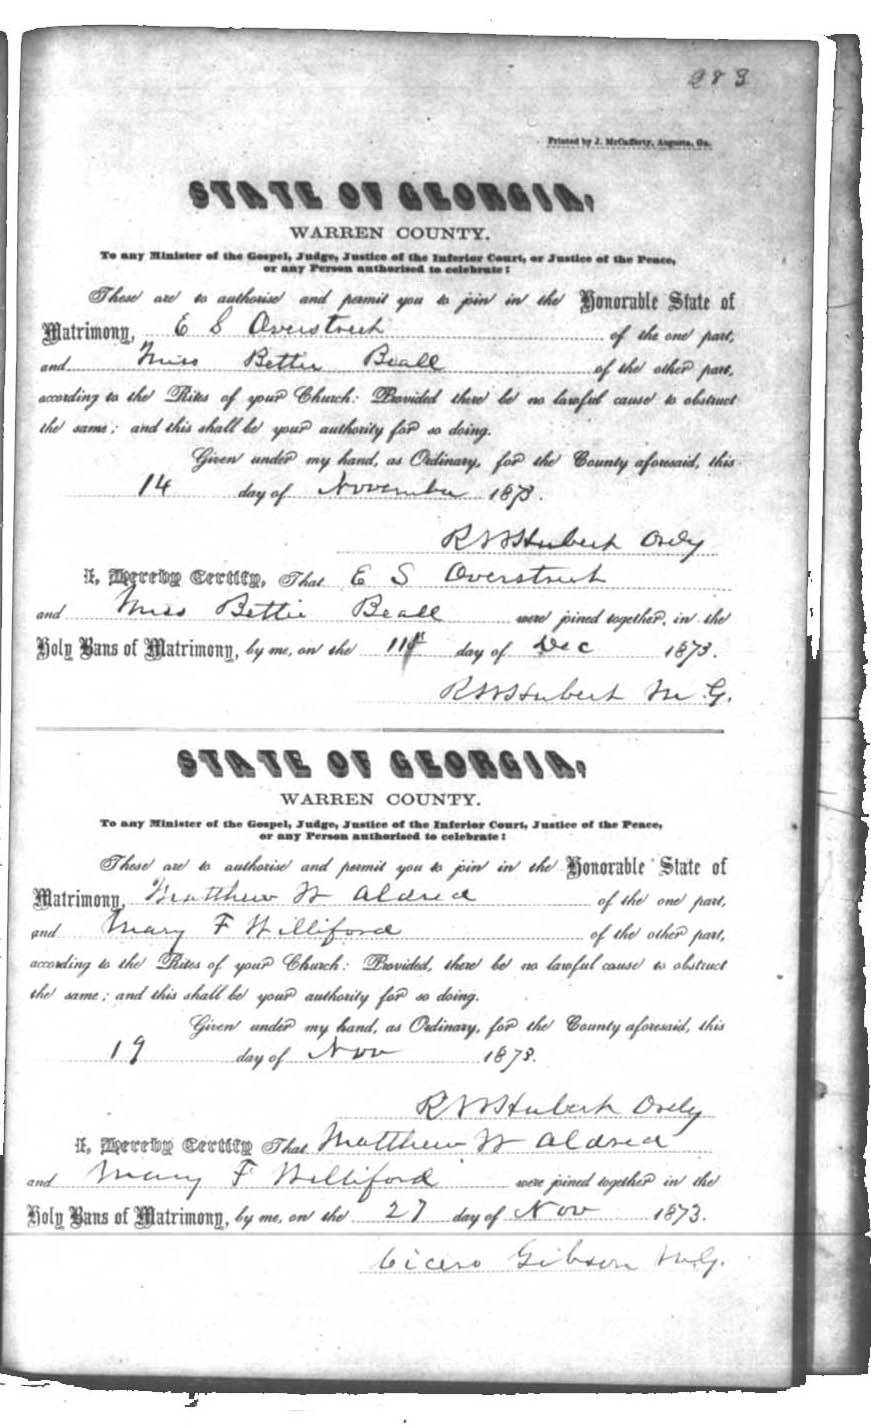 283
Printed by J. McCafferty, Augusta, Ga.
STATE OF GEORGIA,
WARREN COUNTY.
To any Minister of the Gospel, Judge, Justice of the Inferior Court, or Justice of the Peace,
or any Person authorised to celebrate:
These are to authorise and permit you to join in the Honorable State of
Matrimony, E S Overstreet of the one part,
and Miss Bettie Beall of the other part,
according to the Rites of your Church: Provided there be no lawful cause to obstruct
the same; and this shall be your authority for so doing.
Given under my hand, as Ordinary, for the County aforesaid, this
14 day of November 1873.
R W Hubert Ordy
I, Hereby Certify, That E S Overstreet
and Miss Bettie Beall were joined together, in the
Holy Bans of Matrimony, by me, on the 11st day of Dec 1873.
R W Hubert M G.
STATE OF GEORGIA,
WARREN COUNTY.
To any Minister of the Gospel, Judge, Justice of the Inferior Court, Justice of the Peace,
or any Person authorised to celebrate:
These are to authorise and permit you to join in the Honorable State of
Matrimony, Matthew W Aldred of the one part,
and Mary F Williford of the other part,
according to the Rites of your Church: Provided, there be no lawful cause to obstruct
the same; and this shall be your authority for so doing.
Given under my hand, as Ordinary, for the County aforesaid, this
19 day of Nov 1873.
R W Hubert Ordy
I, Hereby Certify That Matthew W Aldred
and Mary F Williford were joined together in the
Holy Bans of Matrimony, by me, on the 27 day of Nov 1873.
Cicero Gibson M.G.